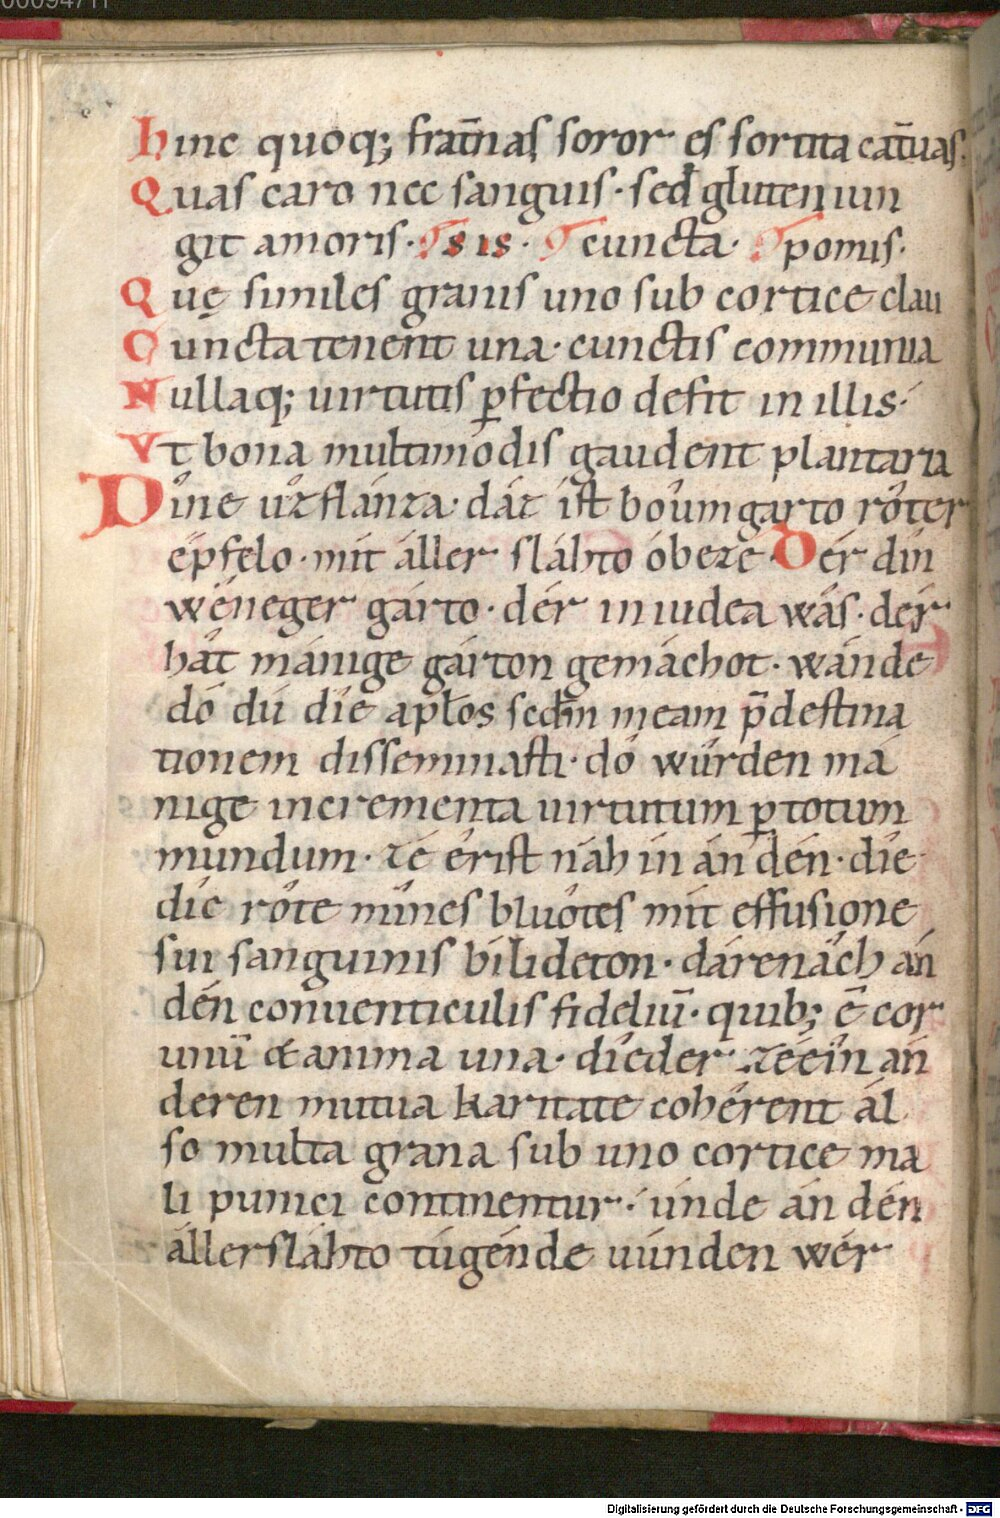 hinc quoq; frat̄nas soror es sortita cat̄uas.
Quas caro nec sanguis · sed gluten iun
git amoris · sis · cuncta · pomis ·
Quę similes granis uno sub cortice clau
Cuncta tenent una · cunctis communia
Nullaq; uirtutis ꝑfectio defit in illis ·
Vt bona multimodis gaudent plantaria
Dîne ûzflánza · dáz íst bôumgarto rôter
épfelo · mit áller sláhto óbeze · Der dîn
wêneger gárto · dér in iudea wás · der
hât mánige gárton gemáchot · wánde
dô dû die apl̄os scd̄m meam p̄destina
tionem disseminasti · dô wúrden má
nige incrementa uirtutum ꝑ totum
mundum · zé êrist náh in án dén · die
die rôte mînes bluôtes mit effusione
sui sanguinis bílideton · dárenâch án
dén conuenticulis fideliū · quib; ē cor
unū & anima una · díeder zéeîn án
deren mutua karitate cohêrent ál
so multa grana sub uno cortice ma
li punici continentur · únde án dén
állersláhto túgende uúnden wér